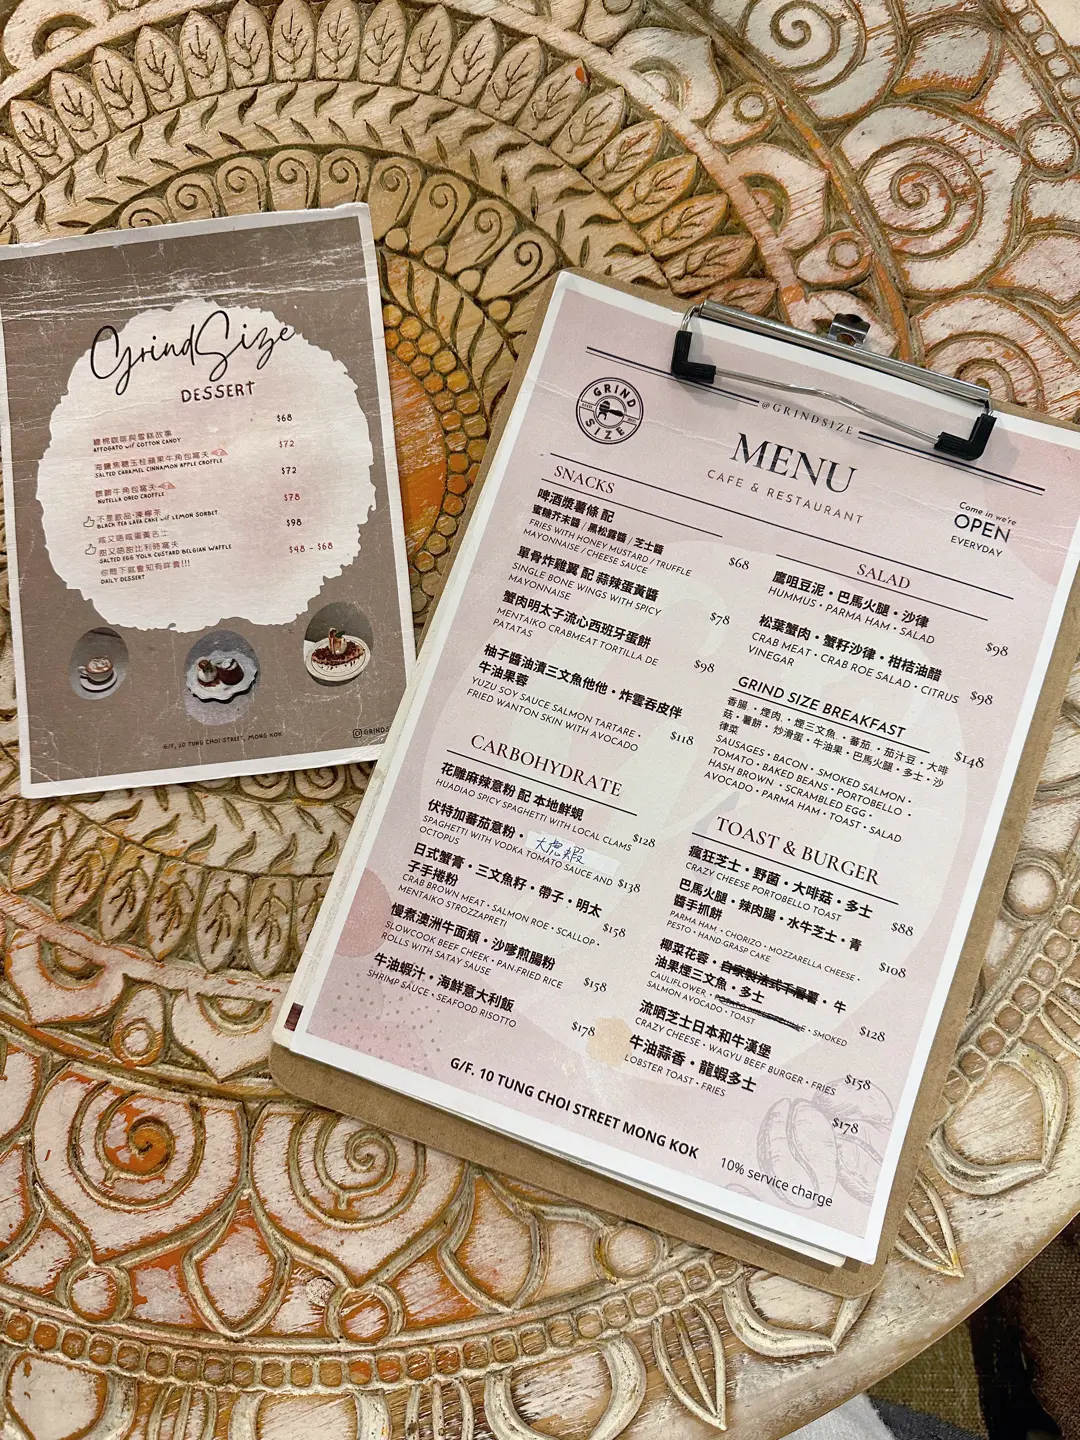 GrindSize
DESSERT
$68
AFFOGATO w/ COTTON CANDY
海鹽焦糖玉桂蘋果牛角包窩夫
$72
SALTED CARAMEL CINNAMON APPLE CROFFLE
牛角包窩夫
$72
NUTELLA OREO CROFFLE
$78
BLACK TEA LAVA CAKE w/ LEMON SORBET
咸又唔咸蛋黃古士
$98
甜又唔甜比利時窩夫
SALTED EGG YOLK CUSTARD BELGIAN WAFFLE
$48 - $68
DAILY DESSERT
G/F, 10 TUNG CHOI STREET, MONG KOK
GRINDS
GRIND
SIZE
@GRINDSIZE
MENU
CAFE & RESTAURANT
Come in we're
OPEN
EVERYDAY
SNACKS
啤酒漿薯條 配
蜜糖芥末醬 / 黑松露醬 / 芝士醬
FRIES WITH HONEY MUSTARD / TRUFFLE
MAYONNAISE / CHEESE SAUCE
$68
單骨炸雞翼 配 蒜辣蛋黃醬
SINGLE BONE WINGS WITH SPICY
MAYONNAISE
$78
蟹肉明太子流心西班牙蛋餅
MENTAIKO CRABMEAT TORTILLA DE
PATATAS
$98
柚子醬油漬三文魚他他・炸雲吞皮伴
牛油果蓉
YUZU SOY SAUCE SALMON TARTARE・
FRIED WANTON SKIN WITH AVOCADO
$118
CARBOHYDRATE
花雕麻辣意粉 配 本地鮮蜆
HUADIAO SPICY SPAGHETTI WITH LOCAL CLAMS
$128
伏特加蕃茄意粉・大虎蝦
SPAGHETTI WITH VODKA TOMATO SAUCE AND
OCTOPUS
$138
日式蟹膏・三文魚籽・帶子・明太
子手捲粉
CRAB BROWN MEAT・SALMON ROE・SCALLOP・
MENTAIKO STROZZAPRETI
$158
慢煮澳洲牛面頰・沙嗲煎腸粉
SLOWCOOK BEEF CHEEK・PAN-FRIED RICE
ROLLS WITH SATAY SAUSE
$158
牛油蝦汁・海鮮意大利飯
SHRIMP SAUCE・SEAFOOD RISOTTO
$178
SALAD
鷹咀豆泥・巴馬火腿・沙律
HUMMUS・PARMA HAM・SALAD
$98
松葉蟹肉・蟹籽沙律・柑桔油醋
CRAB MEAT・CRAB ROE SALAD・CITRUS
VINEGAR
$98
GRIND SIZE BREAKFAST
香腸・煙肉・煙三文魚・蕃茄・茄汁豆・大啡
菇・薯餅・炒滑蛋・牛油果・巴馬火腿・多士・沙
律菜
$148
SAUSAGES・BACON・SMOKED SALMON・
TOMATO・BAKED BEANS・PORTOBELLO・
HASH BROWN・SCRAMBLED EGG・
AVOCADO・PARMA HAM・TOAST・SALAD
TOAST & BURGER
瘋狂芝士・野菌・大啡菇・多士
CRAZY CHEESE PORTOBELLO TOAST
$88
巴馬火腿・辣肉腸・水牛芝士・青
醬手抓餅
PARMA HAM・CHORIZO・MOZZARELLA CHEESE・
PESTO・HAND-GRASP CAKE
$108
椰菜花蓉・自家製法式千層薯・牛
油果煙三文魚・多士
CAULIFLOWER・SMOKED
SALMON AVOCADO・TOAST
$128
流晒芝士日本和牛漢堡
CRAZY CHEESE・WAGYU BEEF BURGER・FRIES
$158
牛油蒜香・龍蝦多士
LOBSTER TOAST・FRIES
$178
G/F. 10 TUNG CHOI STREET MONG KOK
10% service charge